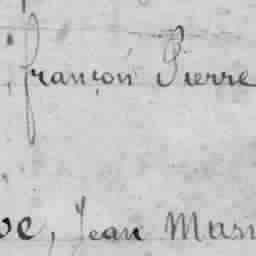 , françon Pierre
ve, Jean Mas